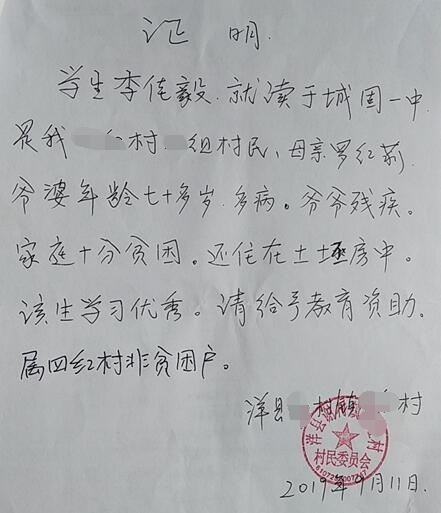 证 明.
学生李佳毅.就读于城固一中.
是我 红村 组村民,母亲罗红莉
爷婆年龄七十多岁.多病。爷爷残疾。
家庭十分贫困。还住在土坯房中。
该生学习优秀。请给予教育资助.
属四红村非贫困户。
洋县 村镇 村
村民委员会
2019年9月11日.